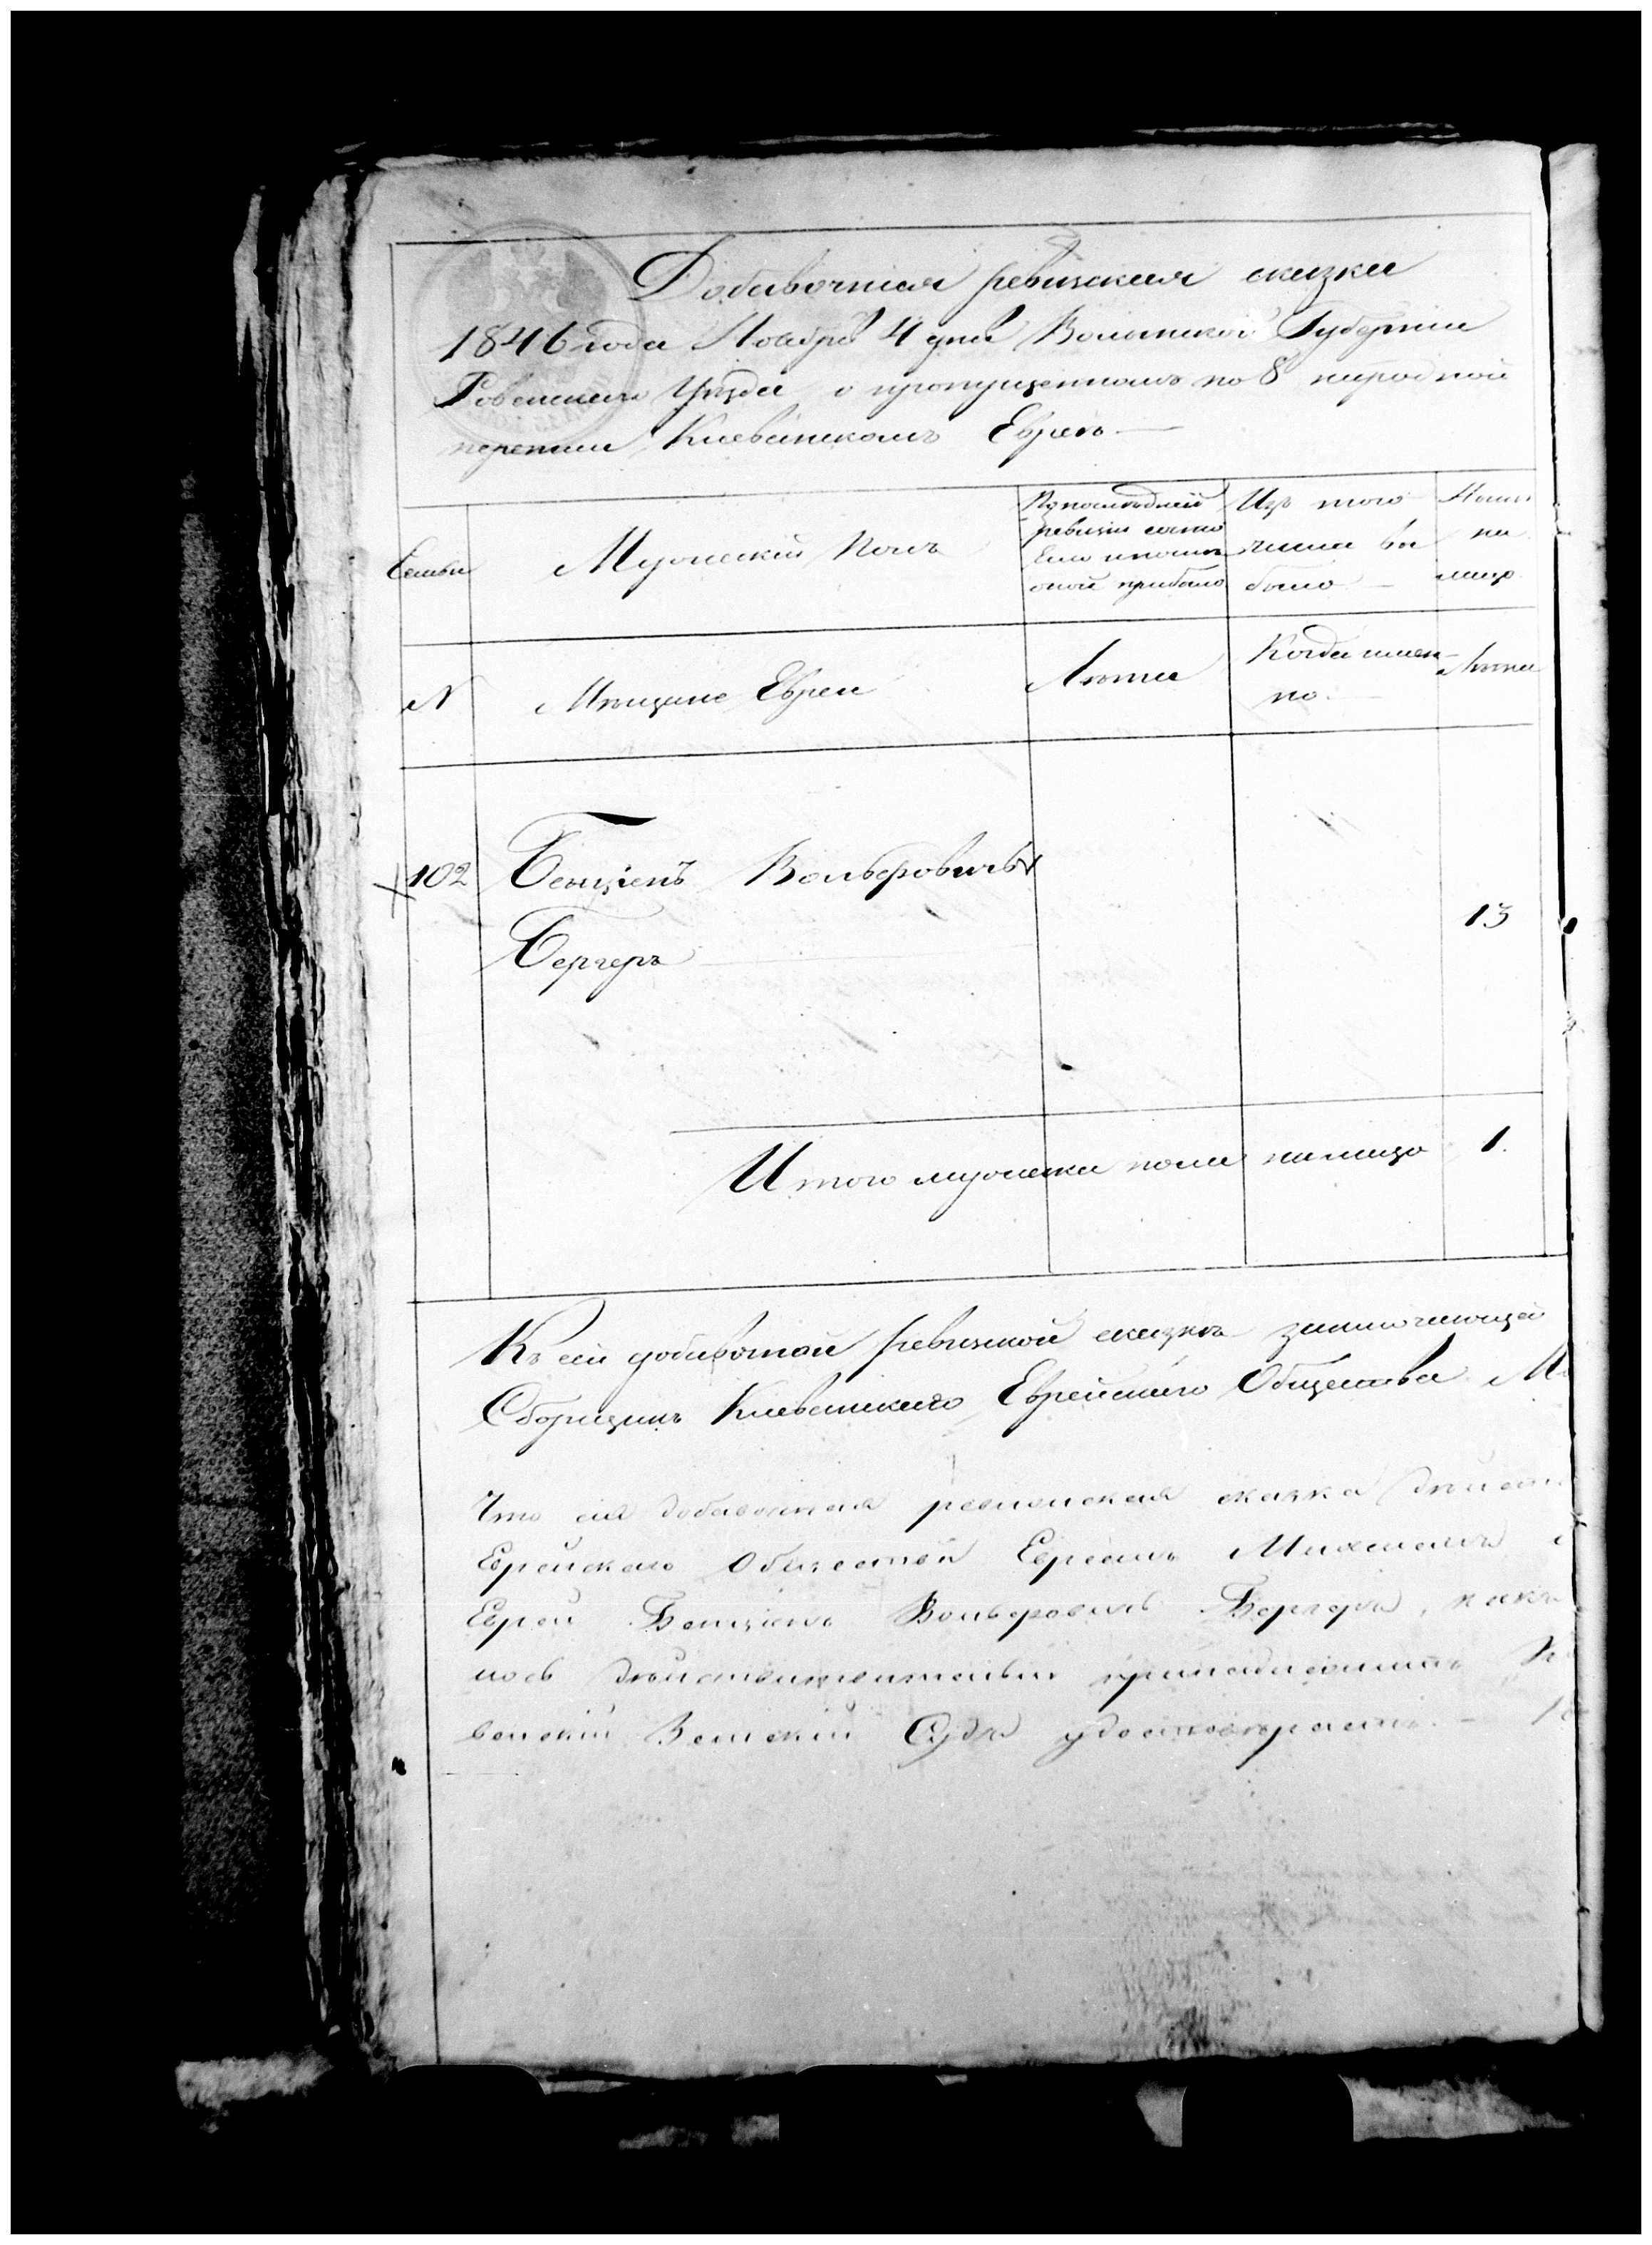 Добавочная ревизская сказка
1846 года Ноября 4 дня Волынской Губернии
Ровенского Уезда о пропущенномъ по 8 народной
переписи Клеванскомъ Еврее
Семьи
Мужеской Полъ
По последней
ревизіи состо
яло и после
оной прибыло
Изъ того
числа вы
было
Ныне
на
лицо
N
Мещане Евреи
Лета
Когда имен-
но.
Лета
102
Бенціонъ Вольфовичъ
Бергеръ
13
Итого мужеска пола налицо 1.
Къ сей добавочной ревизской сказке
Сборщикъ Клеванского Еврейского Общества
Что сія добавочная ревизская сказка
Еврейского Общества Евреемъ
Еврей Бенціонъ Вольфовичъ Бергеръ,
венскій Земскій Судъ удостоверяетъ. —